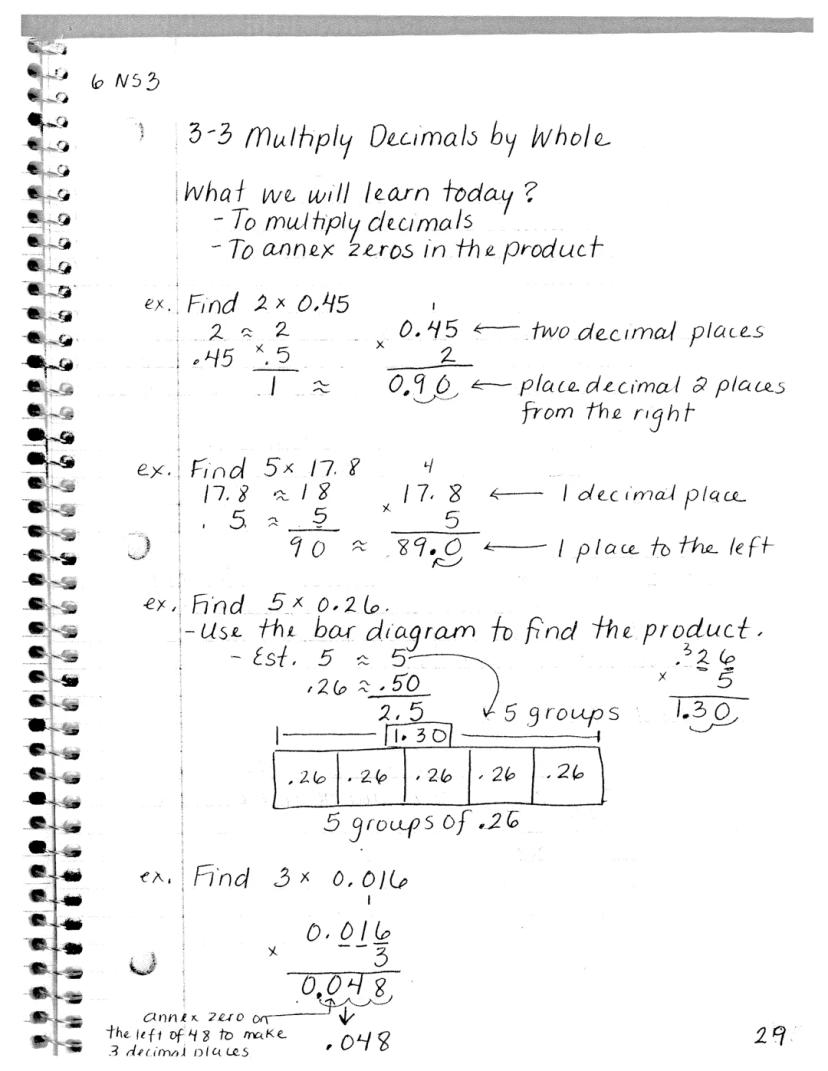 6 NS3
3-3 Multiply Decimals by Whole
What we will learn today?
- To multiply decimals
- To annex zeros in the product
ex. Find 2 × 0.45
2 ≈ 2
.45 ×.5
1 ≈
1
× 0.45 ← two decimal places
2
0.90 ← place decimal 2 places
from the right
ex. Find 5 × 17.8
17.8 ≈ 18
. 5. ≈ 5
90 ≈
4
× 17.8 ← 1 decimal place
5
89.0 ← 1 place to the left
ex. Find 5 × 0.26.
- Use the bar diagram to find the product.
- Est. 5 ≈ 5
.26 ≈ .50
2.5
5 groups
3
× .26
5
1.30
1.30
.26 .26 .26 .26 .26
5 groups of .26
ex. Find 3 × 0.016
1
0.016
× 3
0.048
annex zero on
the left of 48 to make
3 decimal places
.048
29